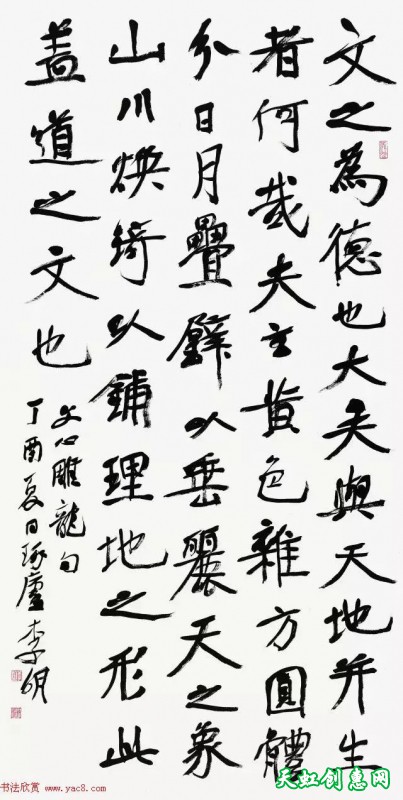 文之為德也大矣與天地并生
者何哉夫玄黄色雜方圓體
分日月疊璧以垂麗天之象
山川焕綺以鋪理地之形此
盖道之文也
文心雕龍句
丁酉夏日琢廬李明
书法欣赏 www.yac8.com
天虹创惠网